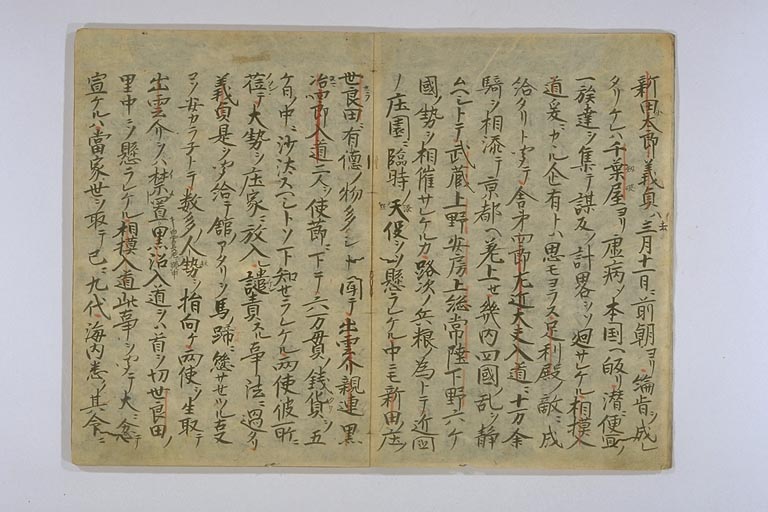 新田太郎義貞ハ去三月十一日ニ前朝ヨリ綸旨ヲ成レ
タリケレハ千葉屋ヨリ虚病シ本国ヘ皈リ潜ニ便宜ノ
一族達ヲ集テ謀反ノ計畧ヲソ廻サレケル相摸入
道妥ニカル企有トハ思モヨラス足利殿敵ニ成
給タリト聞テ舎弟四郎左近大夫入道ニ十万余
騎ヲ相添テ京都ヘ差上セ畿内四國ノ乱ヲ静
ムヘシトテ武蔵上野安房上総常陸下野六ケ
國ノ勢ヲ相催サレケルカ路次ノ兵粮ノ為トテ近国
ノ庄園ニ臨時ノ天役ヲソ懸ラレケル中ニモ新田庄
世良田ニハ有徳ノ物多シトヘ聞テ出雲介親連黒
沼四郎入道二人ヲ使莭ニ下テ六万貫ノ銭貨ヲ五
ケ日ノ中ニ沙汰スヘシトソ下知セラレケル両使彼所ニ
莅テ大勢ヲ庄家ニ放入譴責スル事法ニ過タリ
義貞是ヲ聞給テ館ノアタリヲ馬蹄ニ懸サセツル支
コソ安カラ子トテ数多ノ人勢ヲ指向ケ両使ヲ生取テ
出雲介ヲハ禁置黒沼入道ヲハ首ヲ切世良田ノ
里中ニソ懸ラレケル相摸入道此事ヲ聞テ大ニ忿テ
宣ケルハ當家世ヲ取テ已ニ九代海内悉ク其命ニ